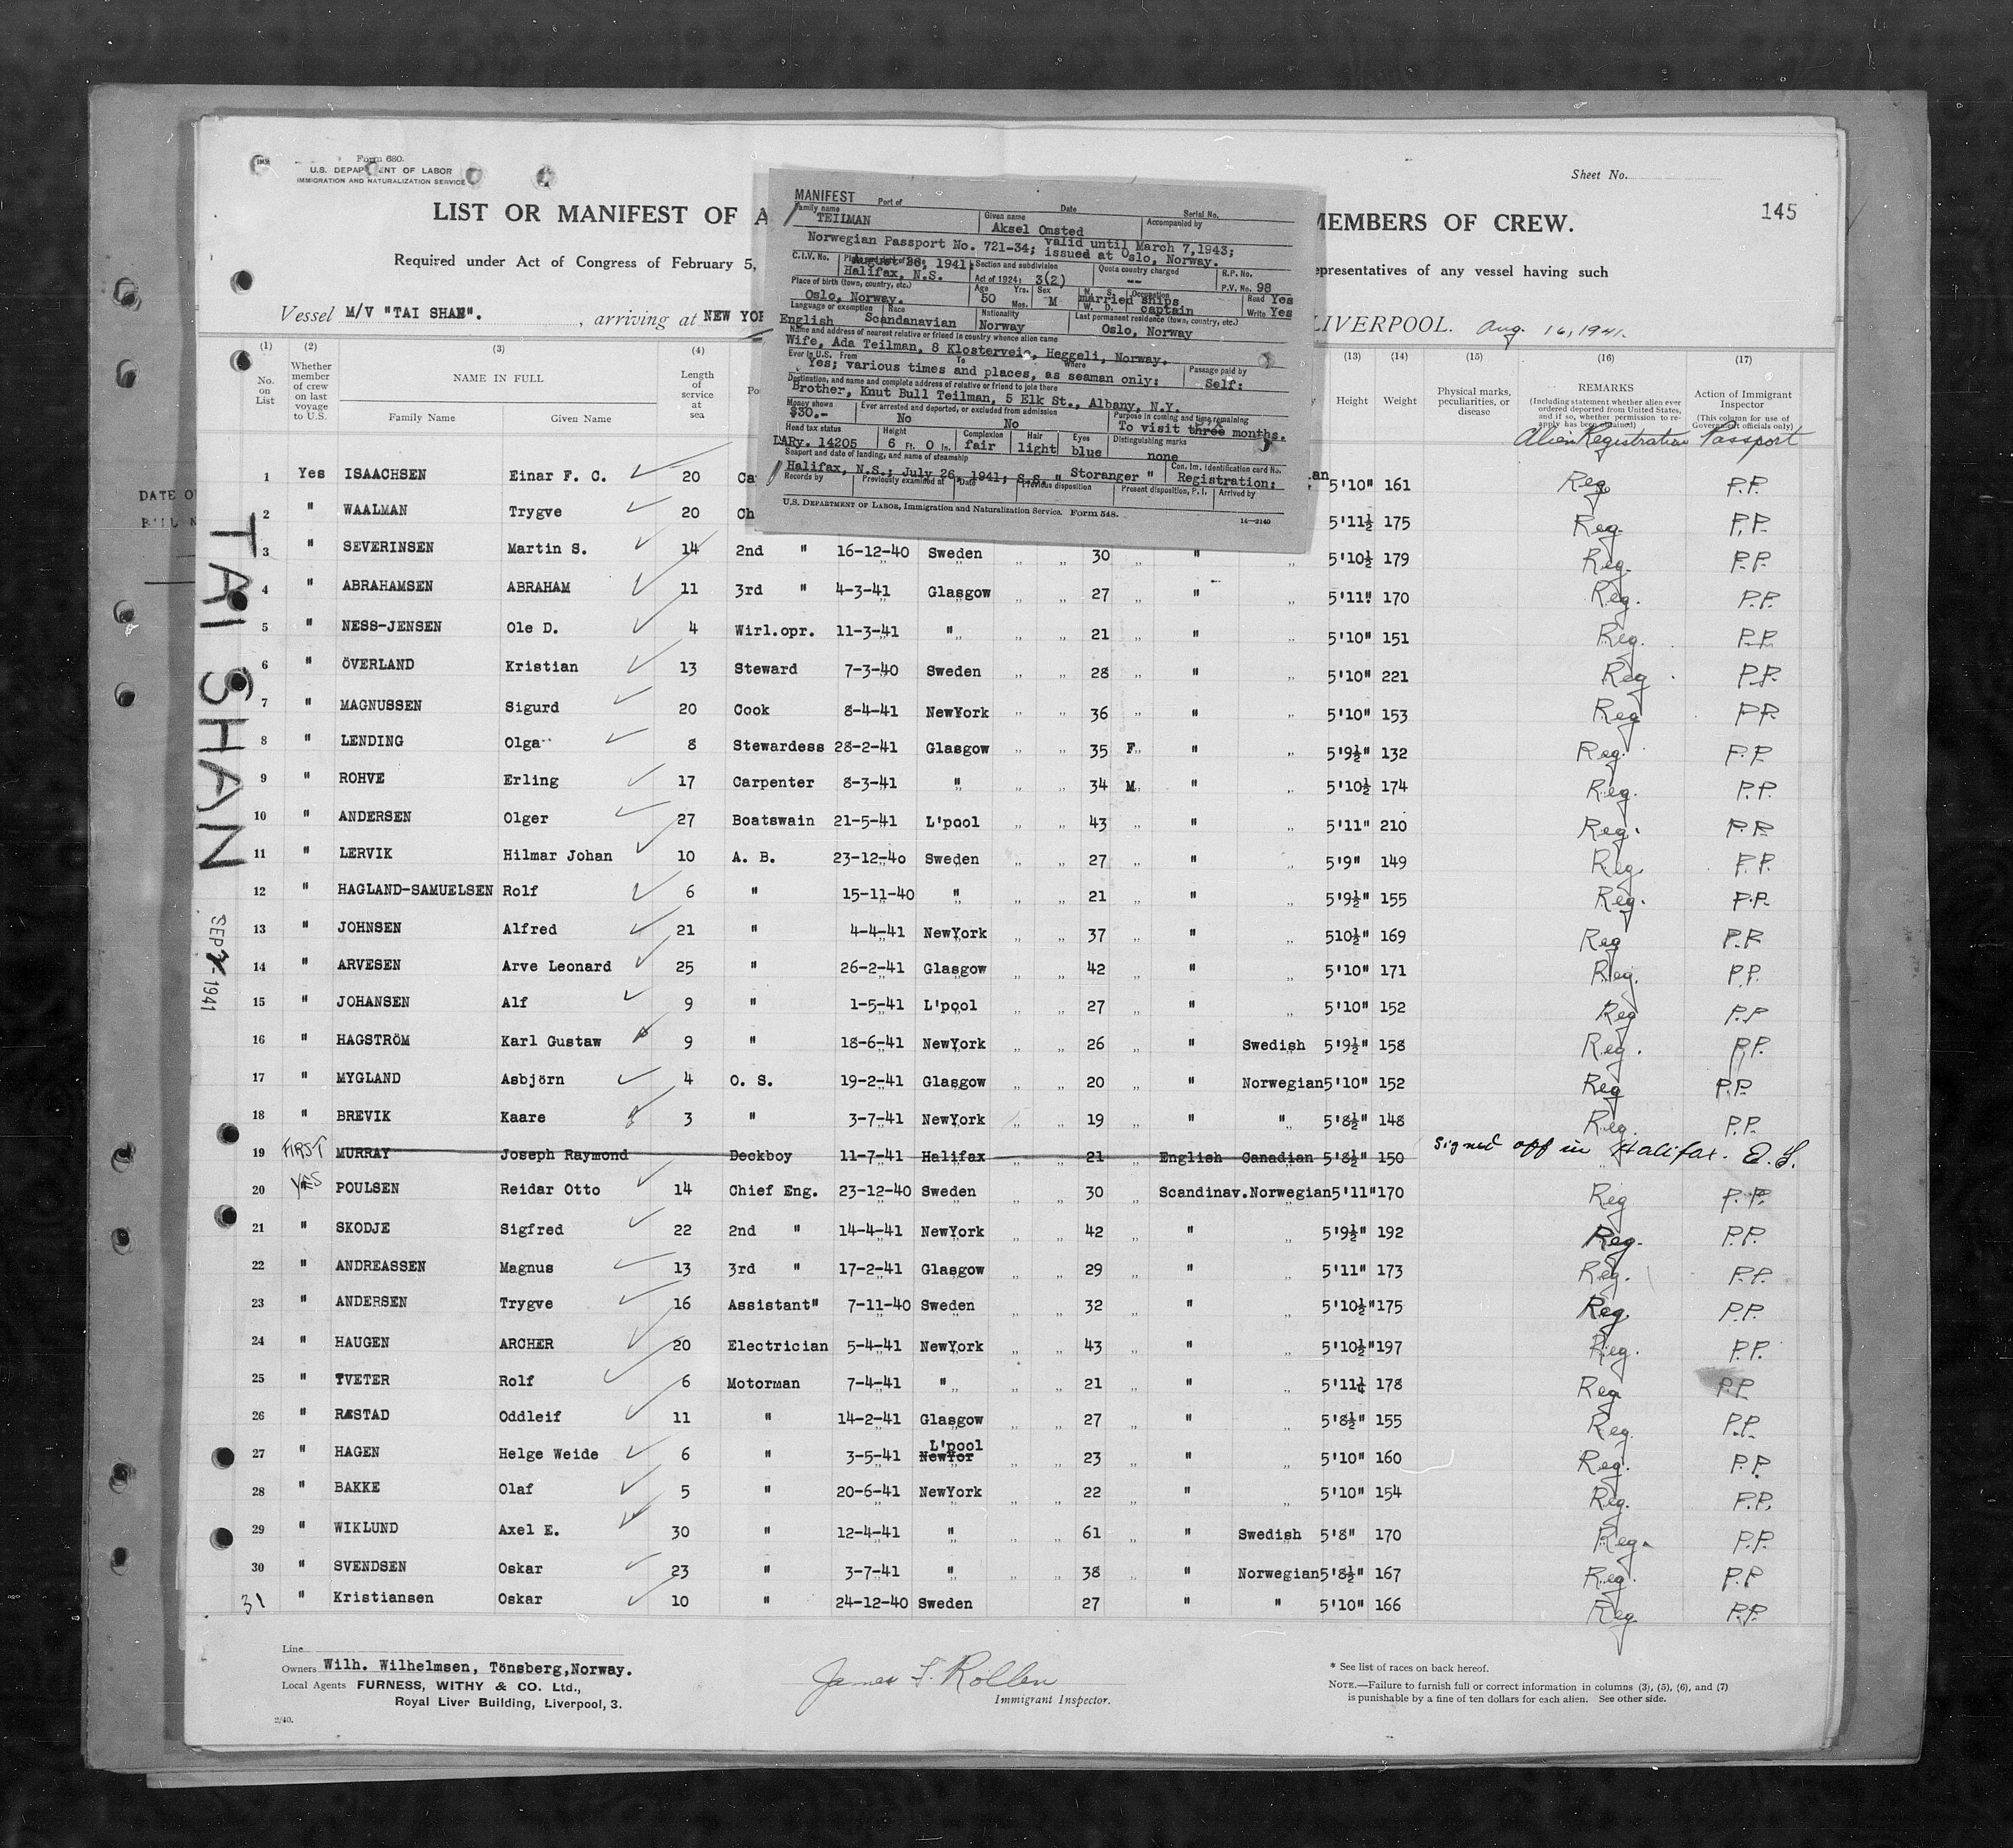 Form 680.
U.S. DEPARTMENT OF LABOR
IMMIGRATION AND NATURALIZATION SERVICE
Sheet No.
145
LIST OR MANIFEST OF A MEMBERS OF CREW.
Required under Act of Congress of February 5, representatives of any vessel having such
Vessel M/V "TAI SHAN". , arriving at NEW YOR LIVERPOOL. Aug. 16, 1941.
MANIFEST Port of Date Serial No.
Family name Given name Accompanied by
TEILMAN Aksel Omsted
Norwegian Passport No. 721-34; valid until March 7,1943; issued at Oslo, Norway.
C.I.V. No. August 28, 1941; Section and subdivision Quota country charged R.P. No.
Halifax, N.S. Act of 1924: 3(2) -- P.V. No. 98
Place of birth (town, country, etc.) Age Yrs. Sex M. S. Occupation Read Yes
Oslo, Norway. 50 Mos. M W. D. married ships captain Write Yes
Language or exemption Race Nationality Last permanent residence (town, country, etc.)
English Scandanavian Norway Oslo, Norway
Name and address of nearest relative or friend in country whence alien came
Wife, Ada Teilman, 8 Klostervein, Heggeli, Norway.
Ever in U.S. From To Where Passage paid by
Yes; various times and places, as seaman only: Self:
Destination, and name and complete address of relative or friend to join there
Brother, Knut Bull Teilman, 5 Elk St., Albany, N.Y.
Money shown Ever arrested and deported, or excluded from admission Purpose in coming and time remaining
$30.- No No To visit three months.
Head tax status Height Complexion Hair Eyes Distinguishing marks
DARy. 14205 6 Ft. 0 In. fair light blue none
Seaport and date of landing, and name of steamship Con. Im. Identification card No.
Halifax, N.S.; July 26, 1941; S.S. " Storanger " Registration:
Records by Previously examined at Date Previous disposition Present disposition, P. I. Arrived by
U.S. DEPARTMENT OF LABOR, Immigration and Naturalization Service. Form 548. 14—2140
(1) (2) (3) (4) (13) (14) (15) (16) (17)
No. on List
Whether member of crew on last voyage to U.S.
NAME IN FULL
Family Name Given Name
Length of service at sea
Height Weight
Physical marks, peculiarities, or disease
REMARKS
(Including statement whether alien ever ordered deported from United States, and if so, whether permission to reapply has been obtained)
Action of Immigrant Inspector
(This column for use of Government officials only)
Alien Registration Passport
DATE O
BILL N
TAI SHAN
SEP 1941
1 Yes ISAACHSEN Einar F. C. 20 Ca an 5'10" 161 Reg P.P.
2 " WAALMAN Trygve 20 Ch 5'11½ 175 Reg. P.P.
3 " SEVERINSEN Martin S. 14 2nd " 16-12-40 Sweden " " 30 " " " 5'10½ 179 Reg. P.P.
4 " ABRAHAMSEN ABRAHAM 11 3rd " 4-3-41 Glasgow " " 27 " " " 5'11" 170 Reg. P.P.
5 " NESS-JENSEN Ole D. 4 Wirl.opr. 11-3-41 " " " 21 " " " 5'10" 151 Reg. P.P.
6 " ÖVERLAND Kristian 13 Steward 7-3-40 Sweden " " 28 " " " 5'10" 221 Reg. P.P.
7 " MAGNUSSEN Sigurd 20 Cook 8-4-41 NewYork " " 36 " " " 5'10" 153 Reg P.P.
8 " LENDING Olga 8 Stewardess 28-2-41 Glasgow " " 35 F " " 5'9½" 132 Reg. P.P.
9 " ROHVE Erling 17 Carpenter 8-3-41 " " " 34 M " " 5'10½ 174 Reg. P.P.
10 " ANDERSEN Olger 27 Boatswain 21-5-41 L'pool " " 43 " " " 5'11" 210 Reg. P.P.
11 " LERVIK Hilmar Johan 10 A. B. 23-12-40 Sweden " " 27 " " " 5'9" 149 Reg. P.P.
12 " HAGLAND-SAMUELSEN Rolf 6 " 15-11-40 " " " 21 " " " 5'9½" 155 Reg. P.P.
13 " JOHNSEN Alfred 21 " 4-4-41 NewYork " " 37 " " " 510½" 169 Reg P.P.
14 " ARVESEN Arve Leonard 25 " 26-2-41 Glasgow " " 42 " " " 5'10" 171 Reg. P.P.
15 " JOHANSEN Alf 9 " 1-5-41 L'pool " " 27 " " " 5'10" 152 Reg P.P.
16 " HAGSTRÖM Karl Gustaw 9 " 18-6-41 NewYork " " 26 " " Swedish 5'9½" 158 Reg. P.P.
17 " MYGLAND Asbjörn 4 O. S. 19-2-41 Glasgow " " 20 " " Norwegian 5'10" 152 Reg P.P.
18 " BREVIK Kaare 3 " 3-7-41 NewYork " " 19 " " " 5'8½" 148 Reg. P.P.
19 FIRST MURRAY Joseph Raymond Deckboy 11-7-41 Halifax " " 21 " English Canadian 5'8½" 150 Signed off in Halifax.
20 YES POULSEN Reidar Otto 14 Chief Eng. 23-12-40 Sweden " " 30 " Scandinav. Norwegian 5'11" 170 Reg P.P.
21 " SKODJE Sigfred 22 2nd " 14-4-41 NewYork " " 42 " " " 5'9½" 192 Reg. P.P.
22 " ANDREASSEN Magnus 13 3rd " 17-2-41 Glasgow " " 29 " " " 5'11" 173 Reg. P.P.
23 " ANDERSEN Trygve 16 Assistant" 7-11-40 Sweden " " 32 " " " 5'10½" 175 Reg P.P.
24 " HAUGEN ARCHER 20 Electrician 5-4-41 NewYork " " 43 " " " 5'10½" 197 Reg. P.P.
25 " TVETER Rolf 6 Motorman 7-4-41 " " " 21 " " " 5'11¼ 178 Reg P.P.
26 " RÆSTAD Oddleif 11 " 14-2-41 Glasgow " " 27 " " " 5'8½" 155 Reg. P.P.
27 " HAGEN Helge Weide 6 " 3-5-41 L'pool NewYor " " 23 " " " 5'10" 160 Reg. P.P.
28 " BAKKE Olaf 5 " 20-6-41 NewYork " " 22 " " " 5'10" 154 Reg. P.P.
29 " WIKLUND Axel E. 30 " 12-4-41 " " " 61 " " Swedish 5'8" 170 Reg. P.P.
30 " SVENDSEN Oskar 23 " 3-7-41 " " " 38 " " Norwegian 5'8½" 167 Reg. P.P.
31 " Kristiansen Oskar 10 " 24-12-40 Sweden 27 " " 5'10" 166 Reg P.P.
Line
Owners Wilh. Wilhelmsen, Tönsberg,Norway.
Local Agents FURNESS, WITHY & CO. Ltd.,
Royal Liver Building, Liverpool, 3.
2/40.
James F. Rollen
Immigrant Inspector.
* See list of races on back hereof.
NOTE.—Failure to furnish full or correct information in columns (3), (5), (6), and (7)
is punishable by a fine of ten dollars for each alien. See other side.